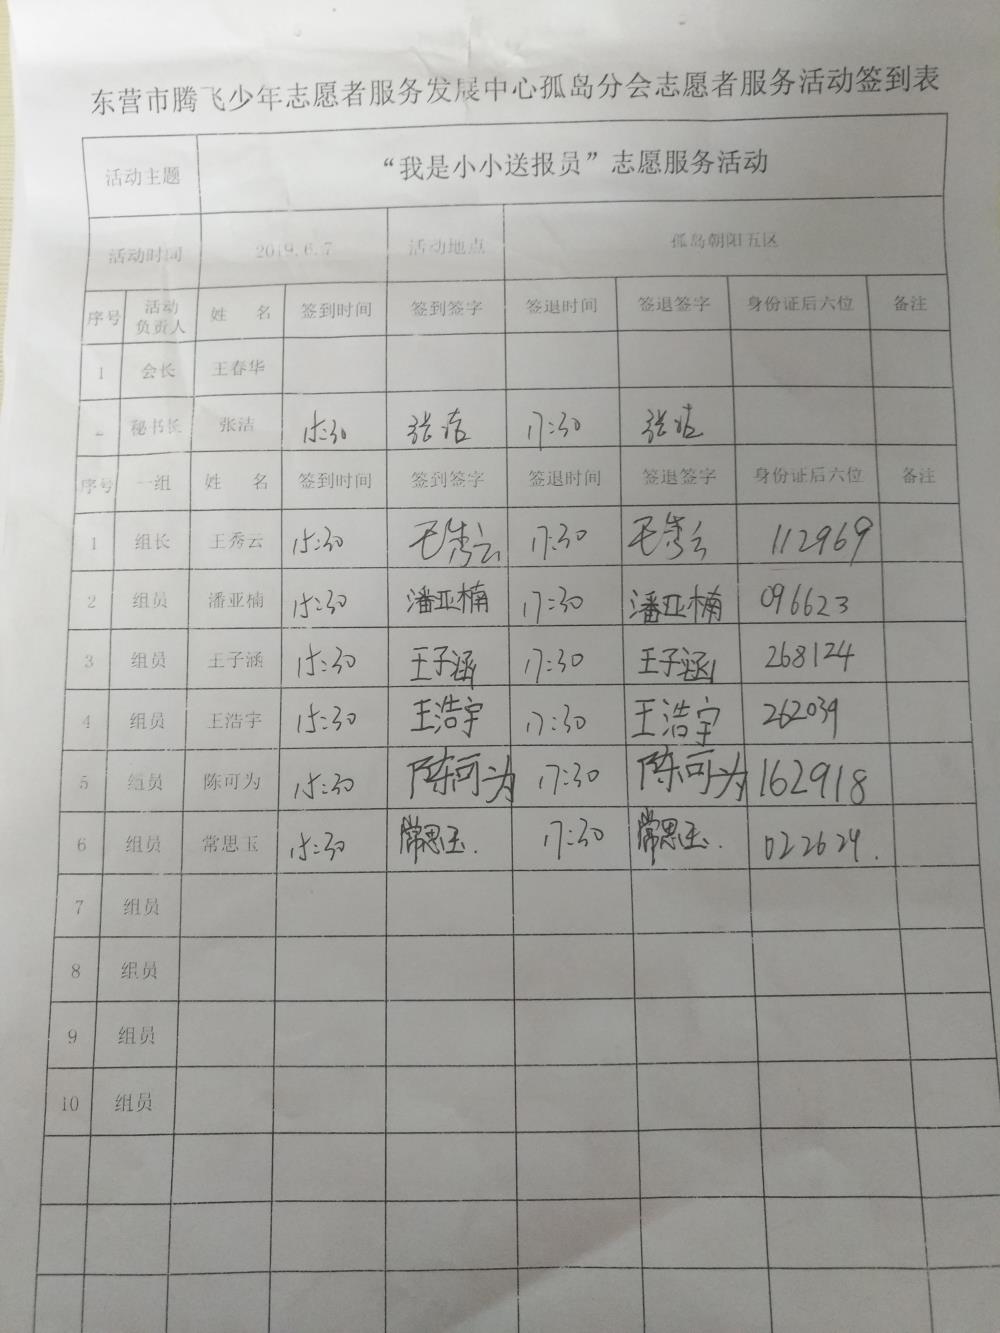 东营市腾飞少年志愿者服务发展中心孤岛分会志愿者服务活动签到表
活动主题 “我是小小送报员”志愿服务活动
活动时间 2019.6.7 活动地点 孤岛朝阳五区
序号 活动负责人 姓 名 签到时间 签到签字 签退时间 签退签字 身份证后六位 备注
1 会长 王春华
2 秘书长 张洁 15:30 张洁 17:30 张洁
序号 一组 姓 名 签到时间 签到签字 签退时间 签退签字 身份证后六位 备注
1 组长 王秀云 15:30 王秀云 17:30 王秀云 112969
2 组员 潘亚楠 15:30 潘亚楠 17:30 潘亚楠 096623
3 组员 王子涵 15:30 王子涵 17:30 王子涵 268124
4 组员 王浩宇 15:30 王浩宇 17:30 王浩宇 262039
5 组员 陈可为 15:30 陈可为 17:30 陈可为 162918
6 组员 常思玉 15:30 常思玉. 17:30 常思玉. 022629.
7 组员
8 组员
9 组员
10 组员